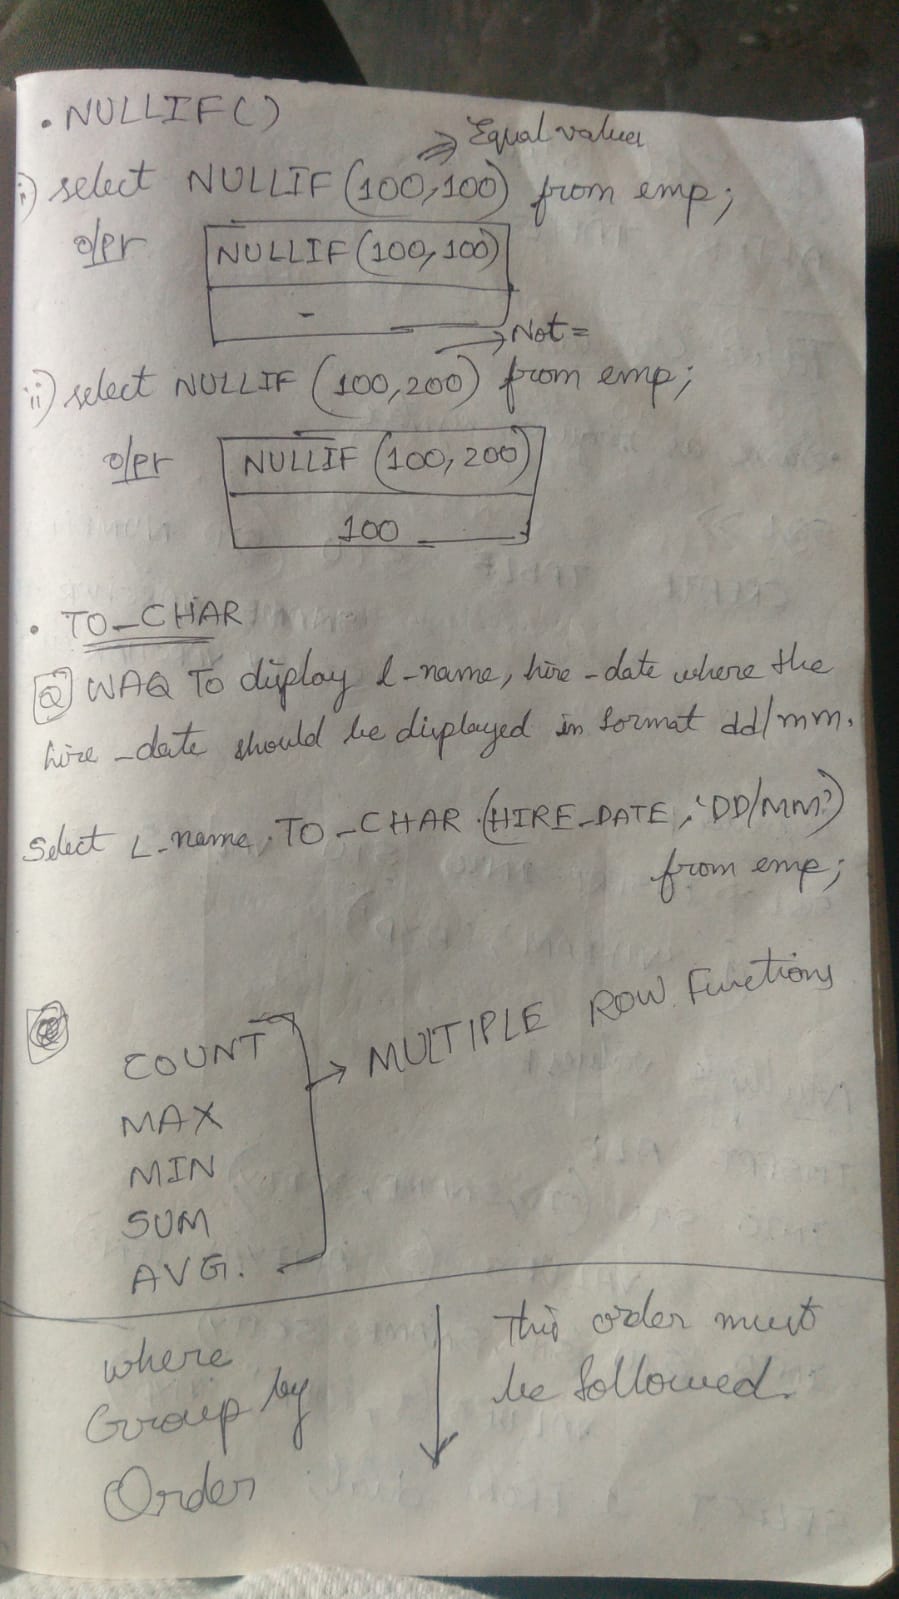 • NULLIF()
⇒ Equal values
i) select NULLIF (100,100) from emp;
o/pr
NULLIF (100,100)
-
→ Not =
ii) select NULLIF (100,200) from emp;
o/pr
NULLIF (100,200)
100
• TO_CHAR
Q WAQ To display l-name, hire-date where the
hire-date should be displayed in format dd/mm.
Select L-name, TO_CHAR (HIRE_DATE, 'DD/MM')
from emp;
COUNT
→ MULTIPLE ROW Functions
MAX
MIN
SUM
AVG.
where
Group by
Order
This order must
be followed.